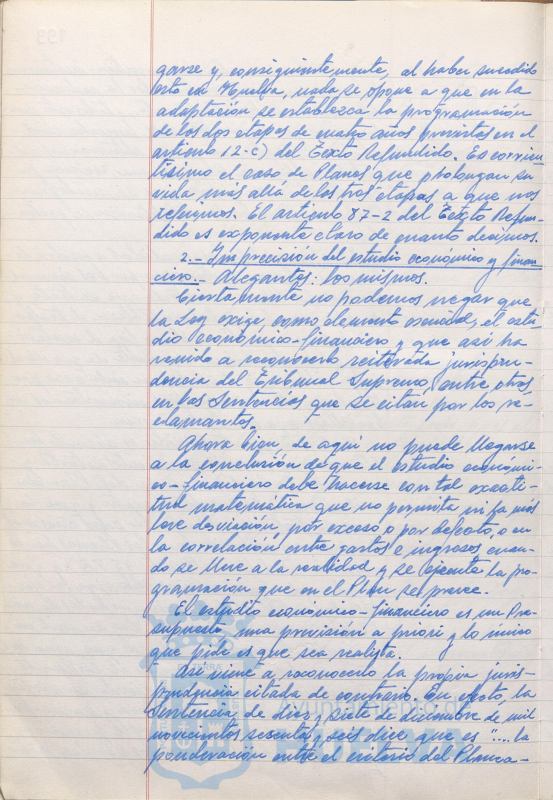 garse y, consiguientemente, al haber sucedido
esto en Huelva, nada se opone a que en la
adaptación se establezca la programación
de los dos etapas de cuatro años previstas en el
artículo 12-c) del Texto Refundido. Es corrien-
tísimo el caso de Planes que prolongan su
vida más allá de las tres etapas a que nos
referimos. El artículo 82-2 del Texto Refun-
dido es exponente claro de cuanto decimos.
2.- Imprecisión del estudio económico y finan-
ciero.- Alegantes: los mismos.
Ciertamente no podemos negar que
la Ley exige, como elemento esencial, el estu-
dio económico-financiero y que así ha
venido a reconocerlo reiterada jurispru-
dencia del Tribunal Supremo, entre otras
en las Sentencias que se citan por los re-
clamantes.
Ahora bien, de aquí no puede llegarse
a la conclusión de que el estudio económi-
co-financiero debe hacerse con tal exacti-
tud matemática que no permita ni la más
leve desviación, por exceso o por defecto, o en
la correlación entre gastos e ingresos cuan-
do se lleve a la realidad y se ejecute la pro-
gramación que en el Plan se prevee.
El estudio económico-financiero es un Pre-
supuesto, una previsión a priori y lo único
que pide es que sea realista.
Así viene a reconocerlo la propia juris-
prudencia citada de contrario. En efecto, la
Sentencia de diez y siete de diciembre de mil
novecientos sesenta y seis dice que es "... la
ponderación entre el criterio del Planea-
Ayuntamiento de
HUELVA